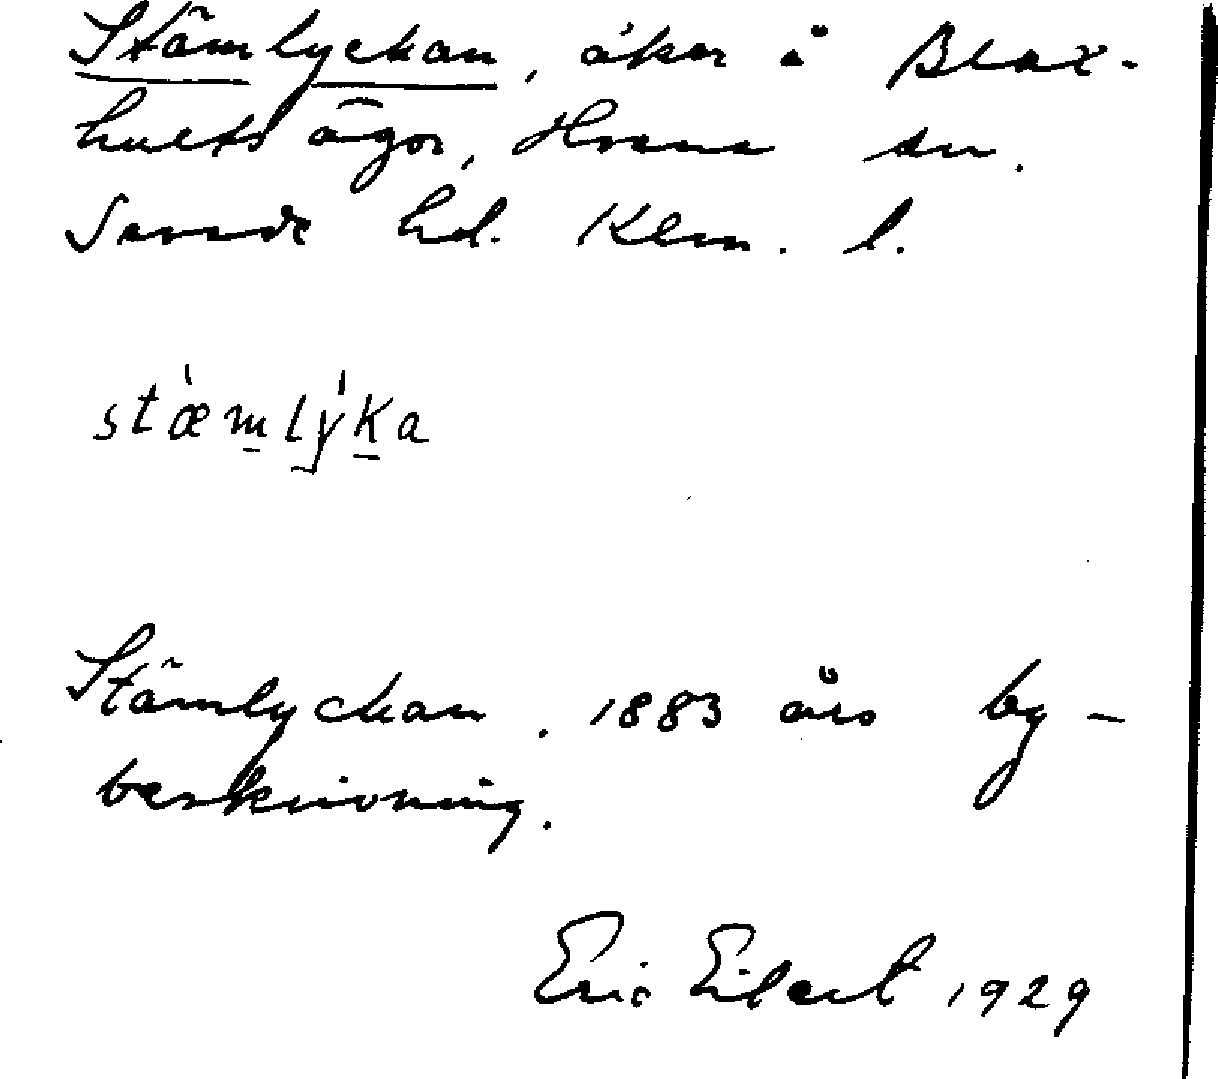 Stämlyckan, åker å Blax-
hults ägor, Hvena sn.
Sevede hd. Kalm. l.
stæ̀mlỳka
Stämlyckan. 1883 års by-
beskrivning.
Eric Eilert 1929